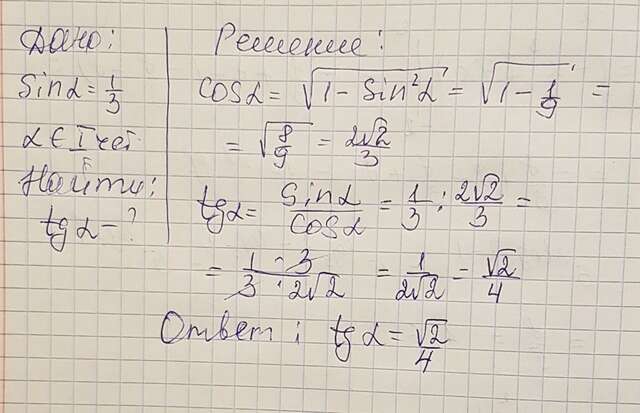 Дано:
sinα = 1/3
α ∈ I чет
Найти:
tgα - ?
Решение:
cosα = √(1 - sin²α) = √(1 - 1/9) =
= √(8/9) = 2√2/3
tgα = sinα/cosα = 1/3 : 2√2/3 =
= 1 · 3/3 · 2√2 = 1/2√2 = √2/4
Ответ: tgα = √2/4